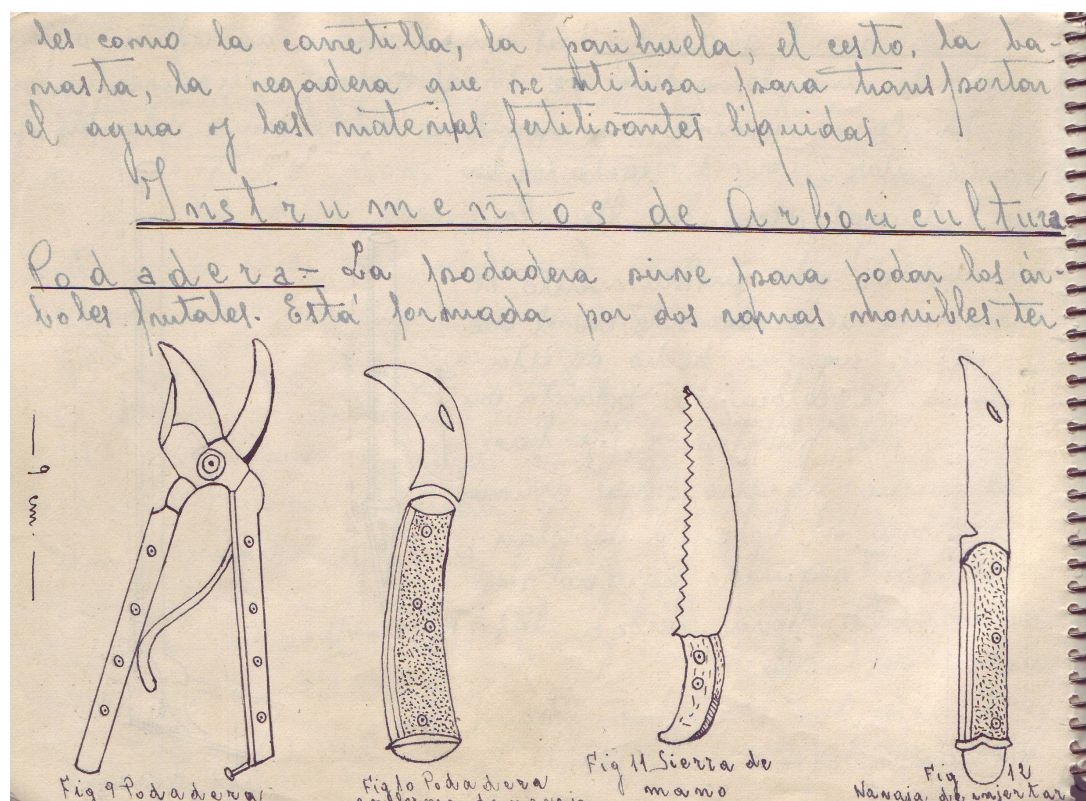 les como la carretilla, la parihuela, el cesto, la ba-
nasta, la regadera que se utilisa para transportar
el agua y las materias fertilisantes liquidas
Instrumentos de Arboricultura
Podadera- La podadera sirve para podar los ár-
boles frutales. Está formada por dos ramas movibles, ter
Fig 9 Podadera
Fig 10 Podadera
en forma de navaja
Fig 11 Sierra de
mano
Fig 12
Navaja de injertar